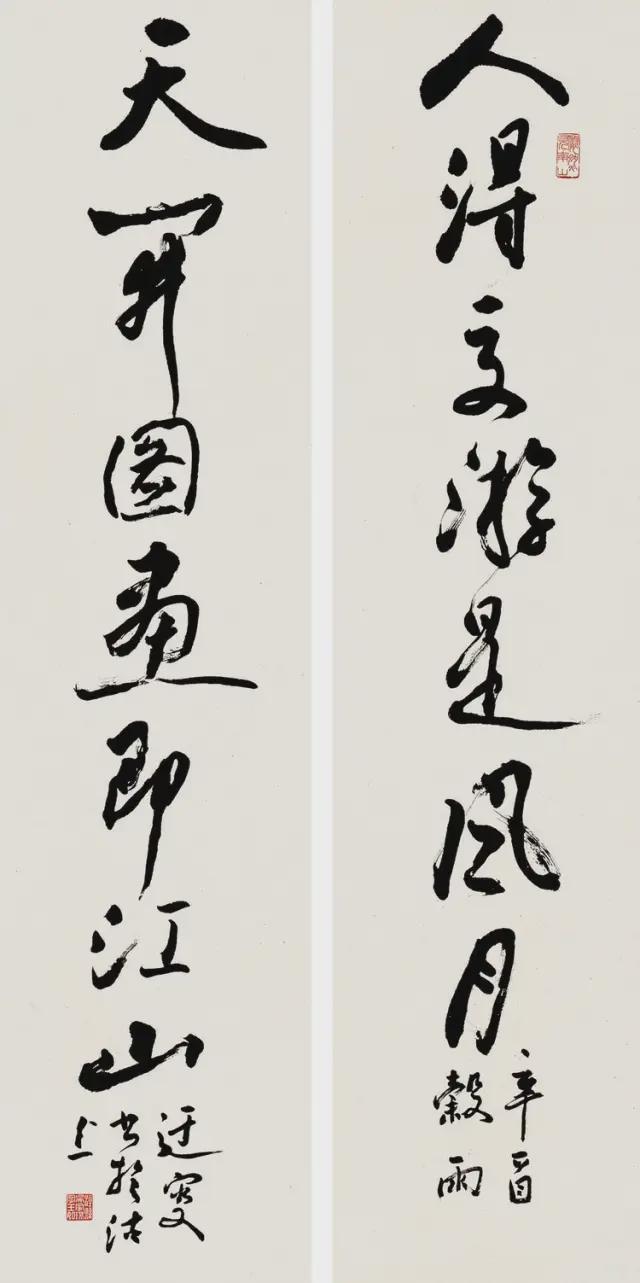 人得交游是风月
辛酉
穀雨
天开图画即江山
迂叟
书於沽
上